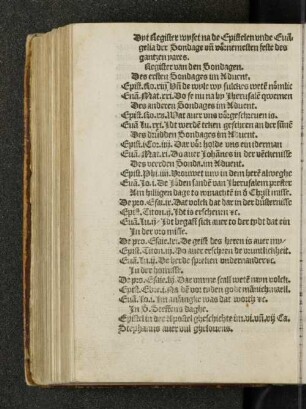 Dyt Register wyset na de Epistelen vnde Euā
gelia der Sondage vn̄ vörnemesten feste des
gantzen yares.
Register van den Sondagen.
Des ersten Sondages im Aduent.
Epist. Ro. xiij. Vn̄ de wyle wy sulckes wetē nömlic
Euā. Mat. xxi. Do se nu na by Jherusalē qwemen
Des anderen Sondages im Aduent.
Epist. Ro. xv. Wat auer vns vörgeschreuen is.
Euā. Lu. xxi. Jdt werdē teken geschen an der sūnē
Des drüdden Sondages im Aduent.
Epist. i. Cor. iiij. Dar vör holde vns ein yderman
Euā. Mat. xi. Do auer Johānes in der vēckenisse
Des veerden Sonda. im Aduent.
Epist. Phi. iiij. Vrouwet iuw in dem herē alweghe
Euā. Jo. i. De Jöden sandē van Jherusalem prester
Am hilligen dage to wynachtē
De pro. Esaie. ix. Dat volck dat dar in der düsternisse
Epist. Titon. ij. Jdt is erschenen
Euā. Lu. ij. Jdt begaff sick auer to der tydt dat ein
In der vro misse.
De pro. Esaie. lxi. De geist des heren is auer my
Epist. Titon. iij. Do auer erschen de vrüntlicheit.
Euā. Lu. ij. De herde spreken vnderanander
In der homisse.
De pro. Esaie. lij. Dar vmme schall wetē myn volck.
Epist. Ebre. i. Na dē vor tyden godt
Euā. Jo. i. Im anfange was dat wordt
In S. Steffens daghe.
Epistel in der Apostel gheschichte im. vi. vn̄. vij. Ca.
Stephanus auer vul ghelouens.